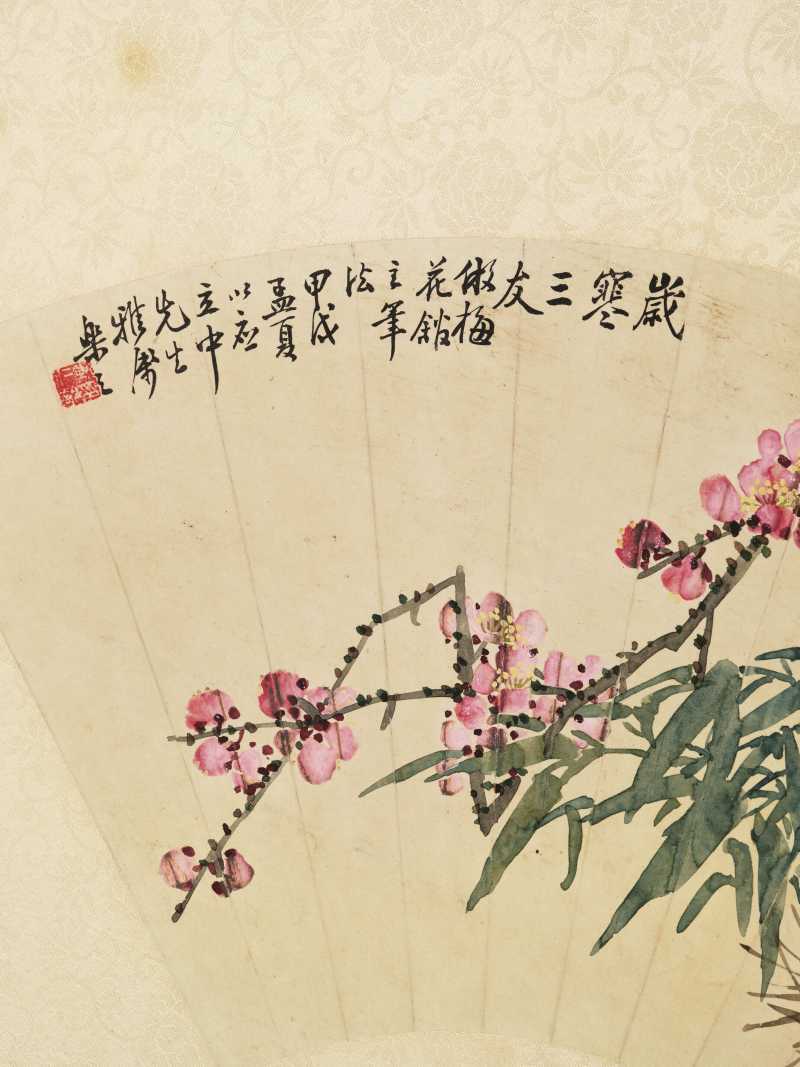 歲
寒
三
友
倣梅
花館
主筆
法
甲戌
孟夏
以應
立中
先生
雅屬
樂